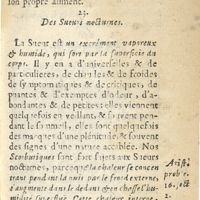 son propre aliment.
23.
Des Sueurs nocturnes.
La Sueur est un excrément vaporeux
& humide, qui sort par la superficie du
corps. Il y en a d'universelles & de
particulieres, de chaudes & de froides
de symptomatiques & de critiques, de
puantes & d'exemptes d'odeur, d'a-
bondantes & de petites: elles viennent
quelquefois en veillant, & souvent pen-
dant le sommeil, elles sont quelquefois
des marques d'une plénitude, & souvent
des signes d'une nature accablée. Nos
Scorbutiques sont fort sujets aux Sueurs
nocturnes, parceque la chaleur se concen-
trant pendant la nuit par le froid externe,
s'augmente dans le dedans & en chasse l'hu-
midité superfluë. Cette chaleur interne
Aristo
prob. e.
16. sect.
2.